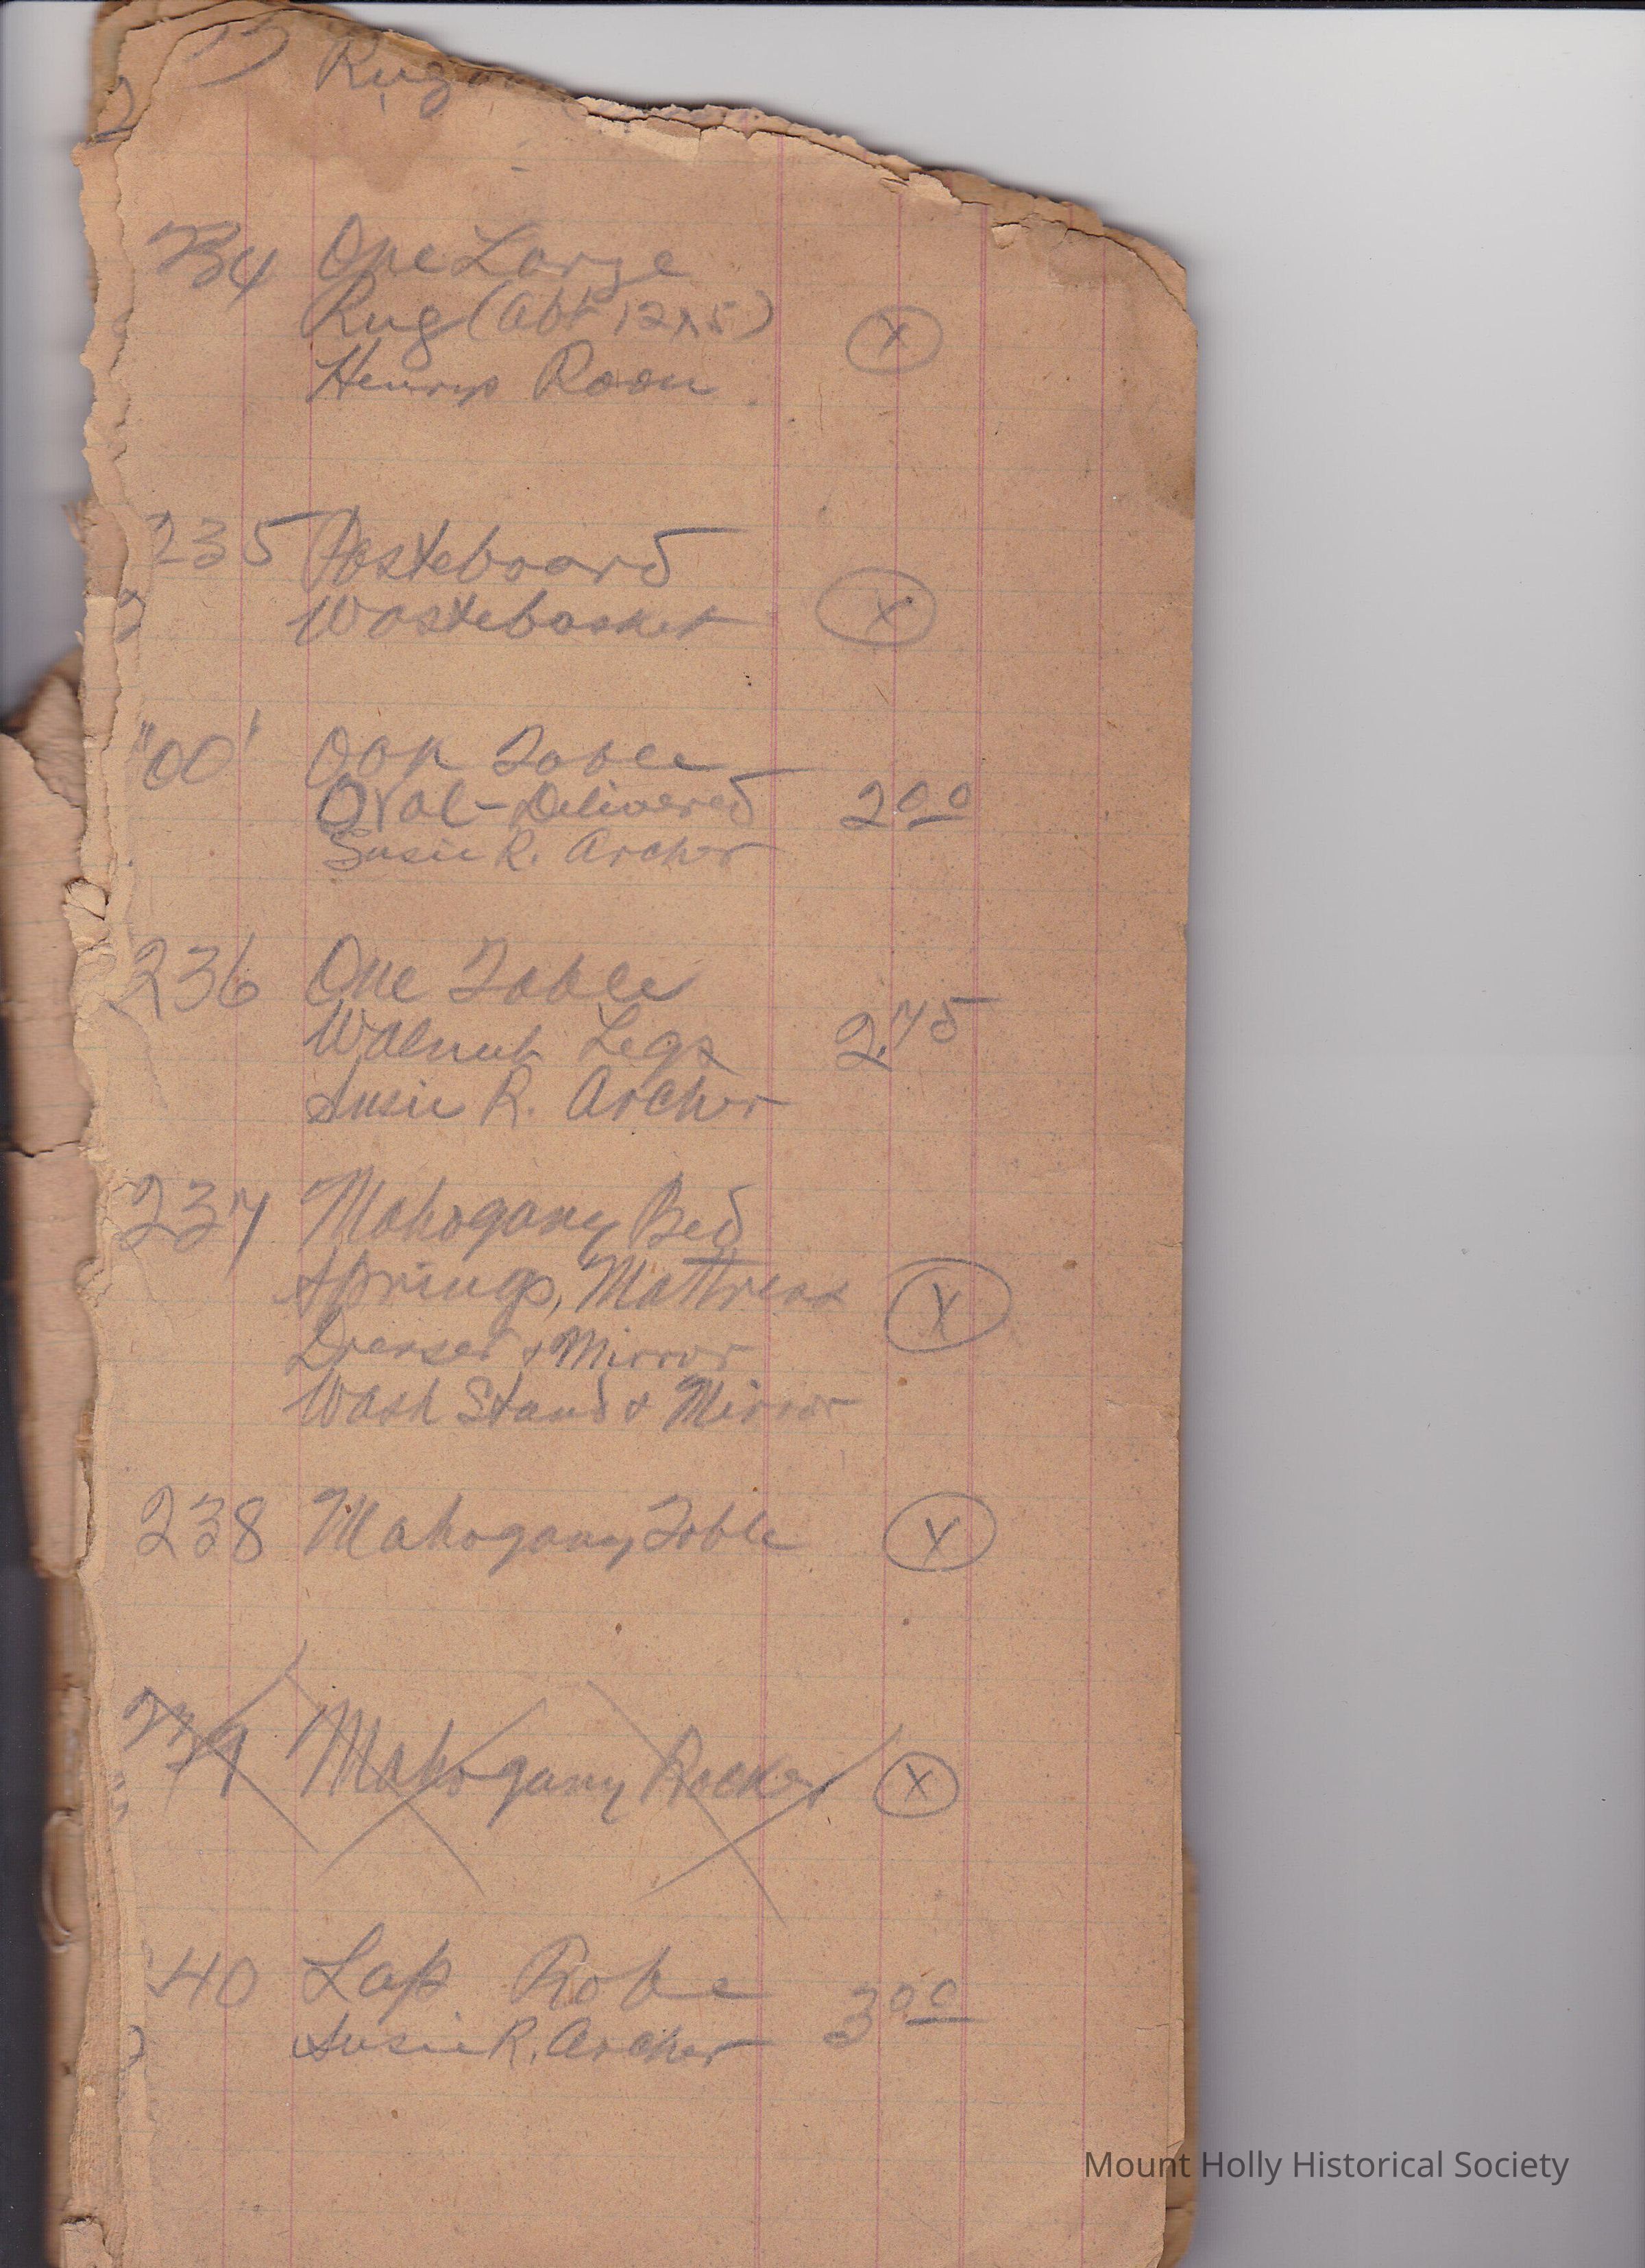 33 Rug
234 One Large
Rug (abt 12x5)
Henrys Room X
235 Pasteboard
Wastebasket X
"00" Oak Table
Oval - Delivered 2 00
Susie R. Archer
236 One Table
Walnut Legs 2.75
Susie R. Archer
237 Mahogany Bed
Springs, Mattress X
Dresser & Mirror
Wash Stand & Mirror
238 Mahogany Table X
239 Mahogany Rocker X
40 Lap Robe 3 00
Susie R. Archer
Mount Holly Historical Society